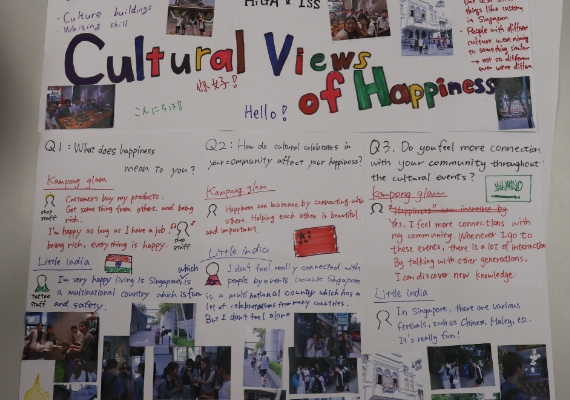 HiGA × ISS
・Culture buildings
・Working skill
things like custom
in Singapore.
・People with different
culture
to something similar
→ not so different
Cultural Views
of Happiness
こんにちは!
Hello!
Q1: What does happiness
mean to you?
Kampong glam
shop staff
Customers buy my products.
Get something from others, and being
rich.
I'm happy as long as I have a job
being rich, everything is happy.
shop staff
Little india
tattoo staff
I'm very happy living is Singapore is which
a multinational country which is fun
and safety.
Q2: How do cultural celebrates in
your community affect your happiness?
Kampong glam
Happiness can increase by connecting with
others. Helping each other is beautiful
and important.
Little india
I don't feel really connected with
people by events because Singapore
is a multinational country which has a
lot of celebrations from many countries.
But I don't feel alone
Q3. Do you feel more connection
with your community throughout
the cultural events?
Kampong glam
"Happiness" can increase by
Yes, I feel more connections with
my community. Whenever I go to
these events, there is a lot of interaction
By talking with other generations,
I can discover new knowledge.
Little india
In Singapore, there are various
festivals, such as Chinese, Maley, etc.
It's really fun!